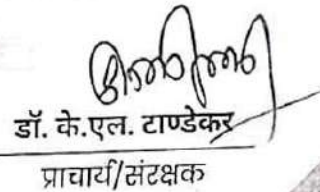 डॉ. के.एल. टाण्डेकर
प्राचार्य/संरक्षक